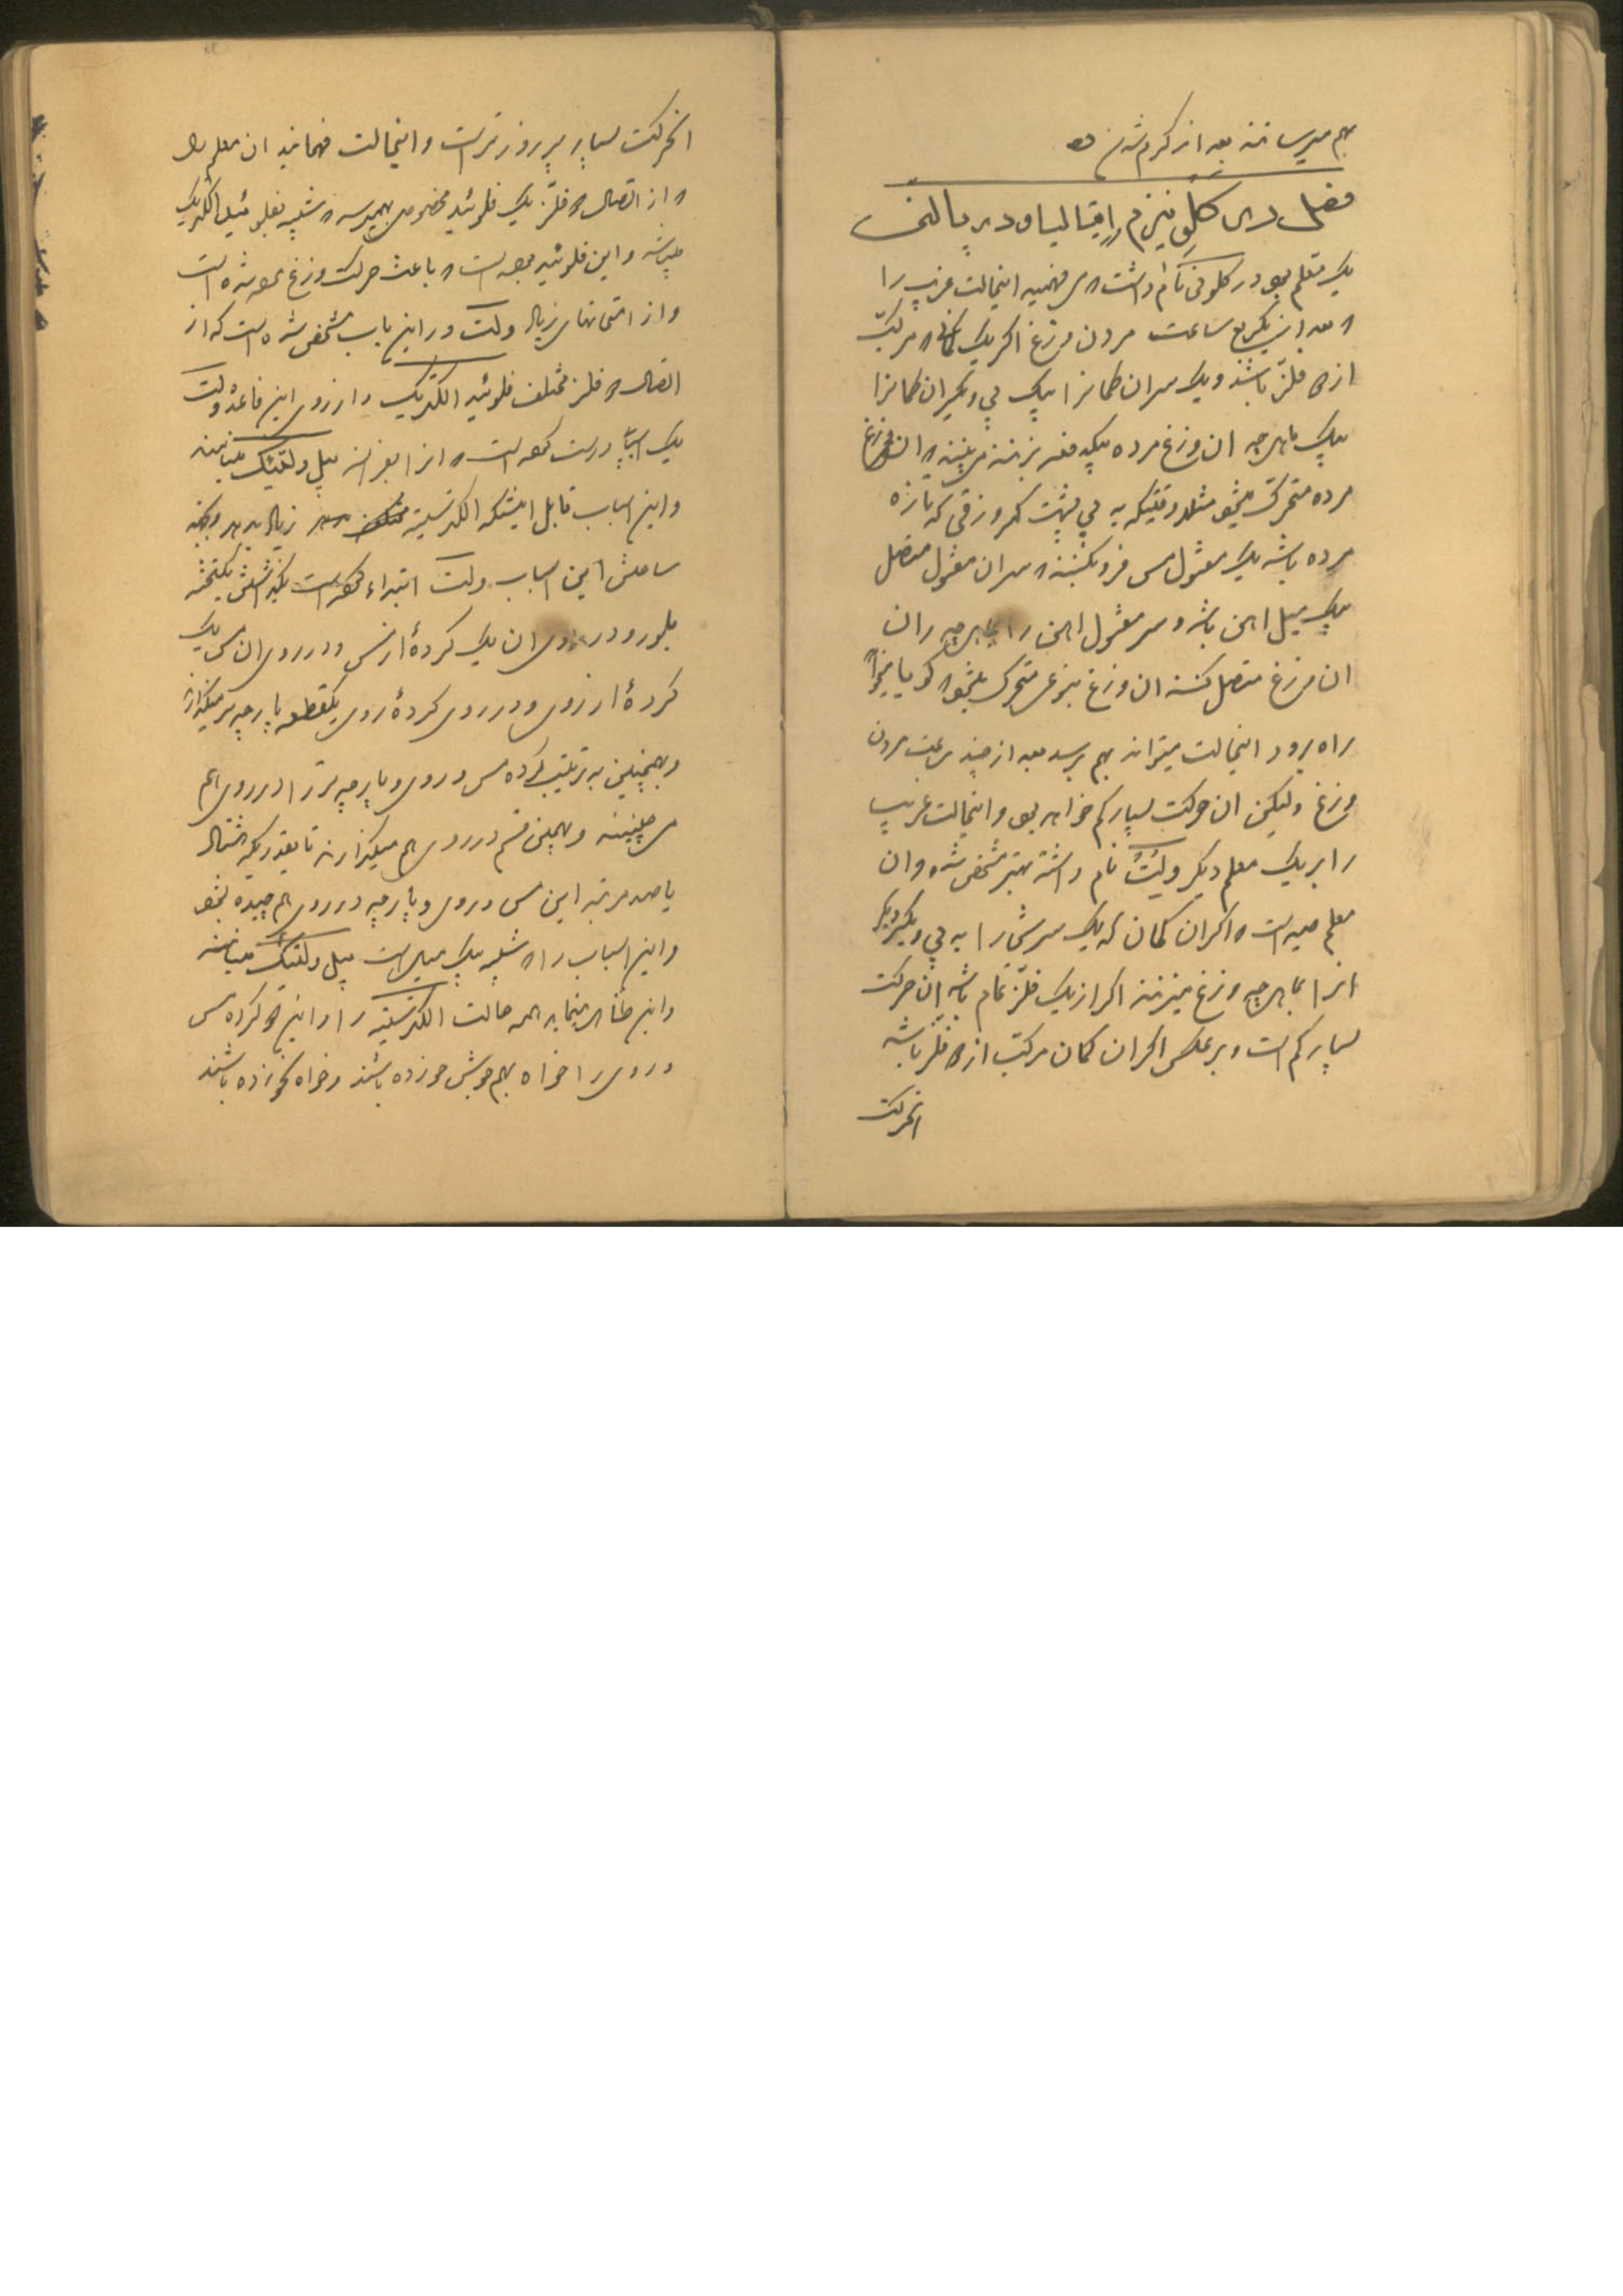 بهم میرسانند بعد از گرم شدن
فصل در گلونیزم ایتالیا و دیر پالنس
یک معلم بود در گلونی نام داشت که فهمید اینحالت غریب را
که بعد از یکربع ساعت مردن وزغ اگر یک کمان که مرکب
از دو فلز باشد و یک سر ان کمانرا بیک پی و دیگر ان کمانرا
بیک ماهیچه ان وزغ مرده یکدفعه بزنند می بینند که ان وزغ
مرده متحرک میشود مثلا وقتیکه به پی پشت کمر وزقی که تازه
مرده باشد یک مفتول مس فرو بکنند که سر ان مفتول متصل
بیک میل اهن باشد و سر مفتول اهن را بماهیچه ران
ان وزغ متصل کنند ان وزغ بنوعی متحرک میشود که گویا میخواهد
راه برود اینحالت میتواند بهم برسد بعد از چند ساعت مردن
وزغ ولیکن ان حرکت بسیار کم خواهد بود و اینحالت غریب
را بر یک معلم دیگر ولت نام داشته بهتر مشخص شده و ان
معلم دیده است که اگر ان کمان که یک سرش را به پی و یکسر دیگر
انرا بماهیچه وزغ میزنند اگر از یک فلز تمام باشد ان حرکت
بسیار کم است و برعکس اگر ان کمان مرکب از دو فلز باشد
انحرکت
انحرکت بسیار پر زور تر است و اینحالت فهمانید ان معلم را
که از اتصال دو فلز یک فلوئید مخصوص بهم میرسد که شبیه بفلوئید الکتریک
میباشد و این فلوئید بوده است که باعث حرکت وزغ مرده شده است
و از امتحانهای زیاد ولت در این باب مشخص شده است که از
اتصال دو فلز مختلف فلوئید الکتریک و از روی این قاعده ولت
یک اسباب درست کرده است که انرا بفرانسه پیل ولتئیک مینامند
و این اسباب قابل اینستکه الکتریسیته زیاد بدهد
ساختن این اسباب ولت ابتداء کرده است یکتخته
بلور و در روی ان یک گرده از مس و در روی ان مس یک
گرده از روی و در روی گرده روی یکقطعه پارچه تر میگذارند
و بهمچنین به ترتیب گرده مس و روی و پارچه تر را در روی هم
می چینند و بهمین قسم در روی هم میگذارند تا بقدریکه هشتاد
یا صد مرتبه این مس و روی و پارچه در روی هم چیده بشود
و این اسباب را که شبیه بیک میل است پیل ولتئیک مینامند
و این ظاهر مینماید همه حالت الکتریسیته را و این دو گرده مس
و روی را خواه بهم جوش خورده باشند و خواه نخورده باشند